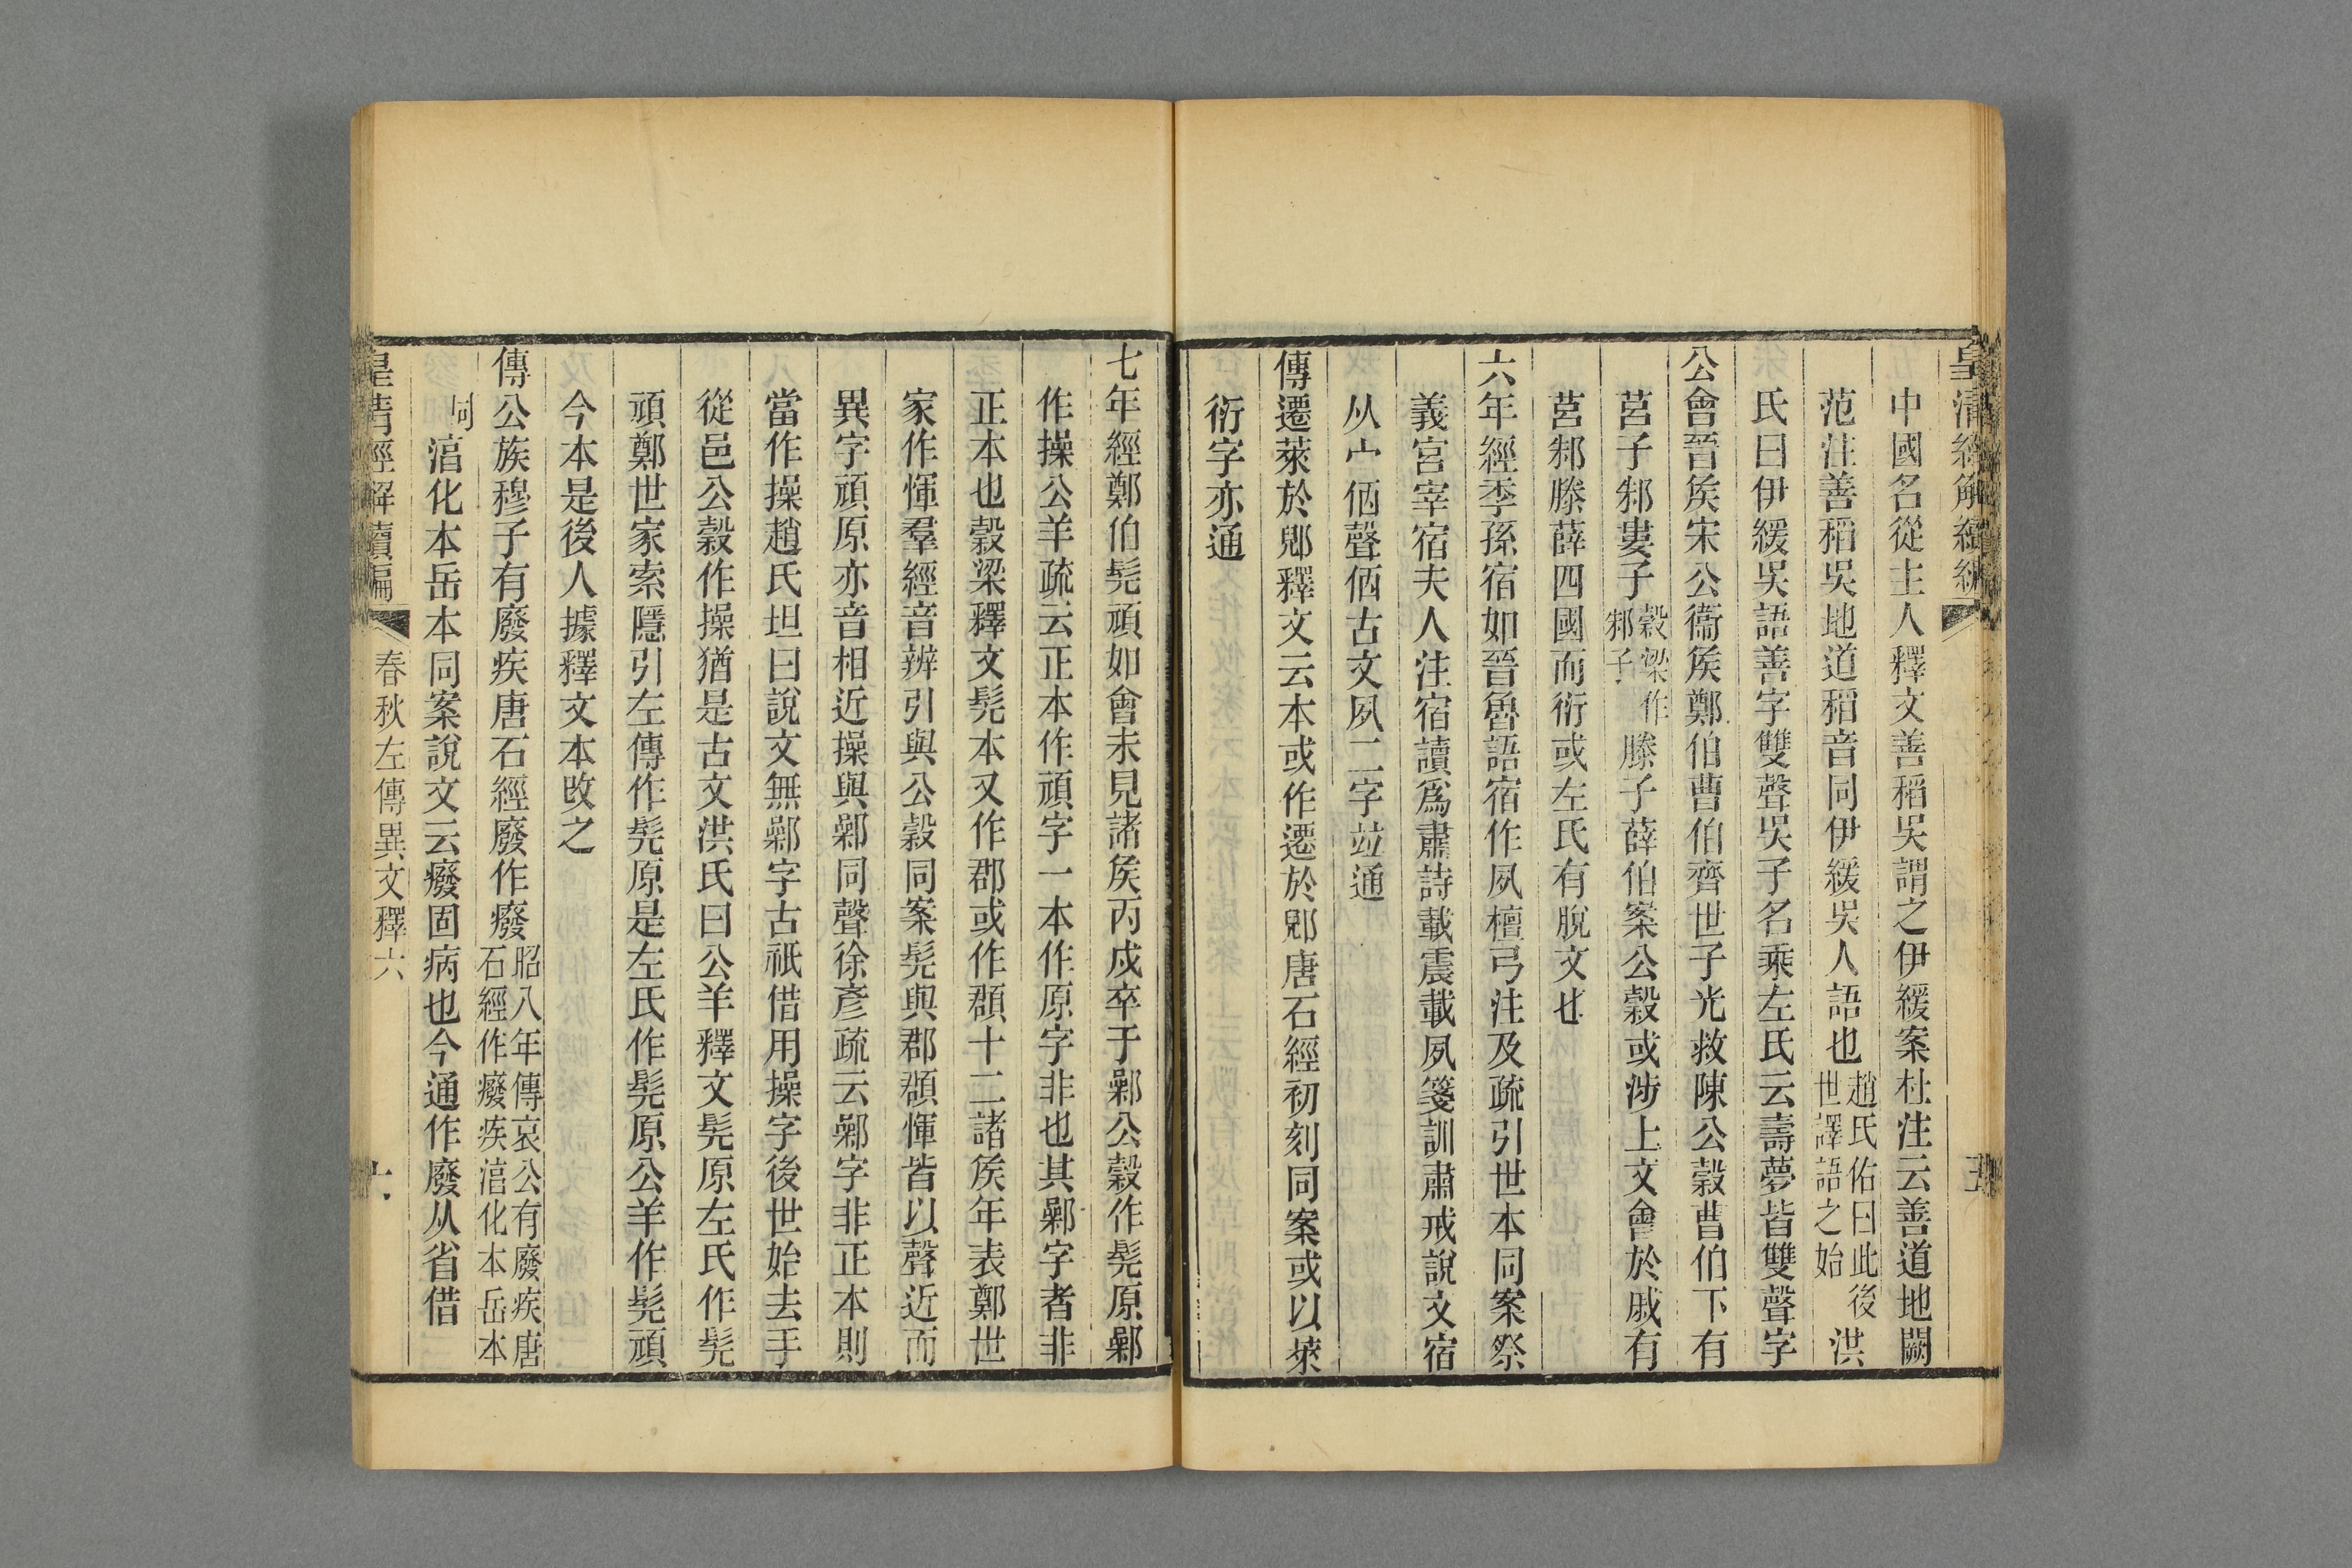 皇清經解續編
五
中國名從主人釋文善稻吳謂之伊緩案杜注云善道地闕
范注善稻吳地道稻音同伊緩吳人語也趙氏佑曰此後世譯語之始洪
氏曰伊緩吳語善字雙聲吳子名乘左氏云壽夢皆雙聲字
公會晉矦宋公衞矦鄭伯曹伯齊世子光救陳公穀曹伯下有
莒子邾婁子穀梁作邾子滕子薛伯案公穀或涉上文會於戚有
莒邾滕薛四國而衍或左氏有脫文也
六年經季孫宿如晉魯語宿作夙檀弓注及疏引世本同案祭
義宮宰宿夫人注宿讀爲肅詩載震載夙箋訓肅戒說文宿
从宀㐁聲㐁古文夙二字竝通
傳遷萊於郳釋文云本或作遷於郳唐石經初刻同案或以萊
衍字亦通
七年經鄭伯髡頑如會未見諸矦丙戌卒于鄵公穀作髡原鄵
作操公羊疏云正本作頑字一本作原字非也其鄵字者非
正本也穀梁釋文髡本又作郡或作頵十二諸矦年表鄭世
家作惲羣經音辨引與公穀同案髡與郡頵惲皆以聲近而
異字頑原亦音相近操與鄵同聲徐彥疏云鄵字非正本則
當作操趙氏坦曰說文無鄵字古祇借用操字後世始去手
從邑公穀作操猶是古文洪氏曰公羊釋文髡原左氏作髡
頑鄭世家索隱引左傳作髡原是左氏作髡原公羊作髡頑
今本是後人據釋文本改之
傳公族穆子有廢疾唐石經廢作癈昭八年傳哀公有廢疾唐石經作癈疾淯化本岳本
同淯化本岳本同案說文云癈固病也今通作廢从省借
皇清經解續編
春秋左傳異文釋六